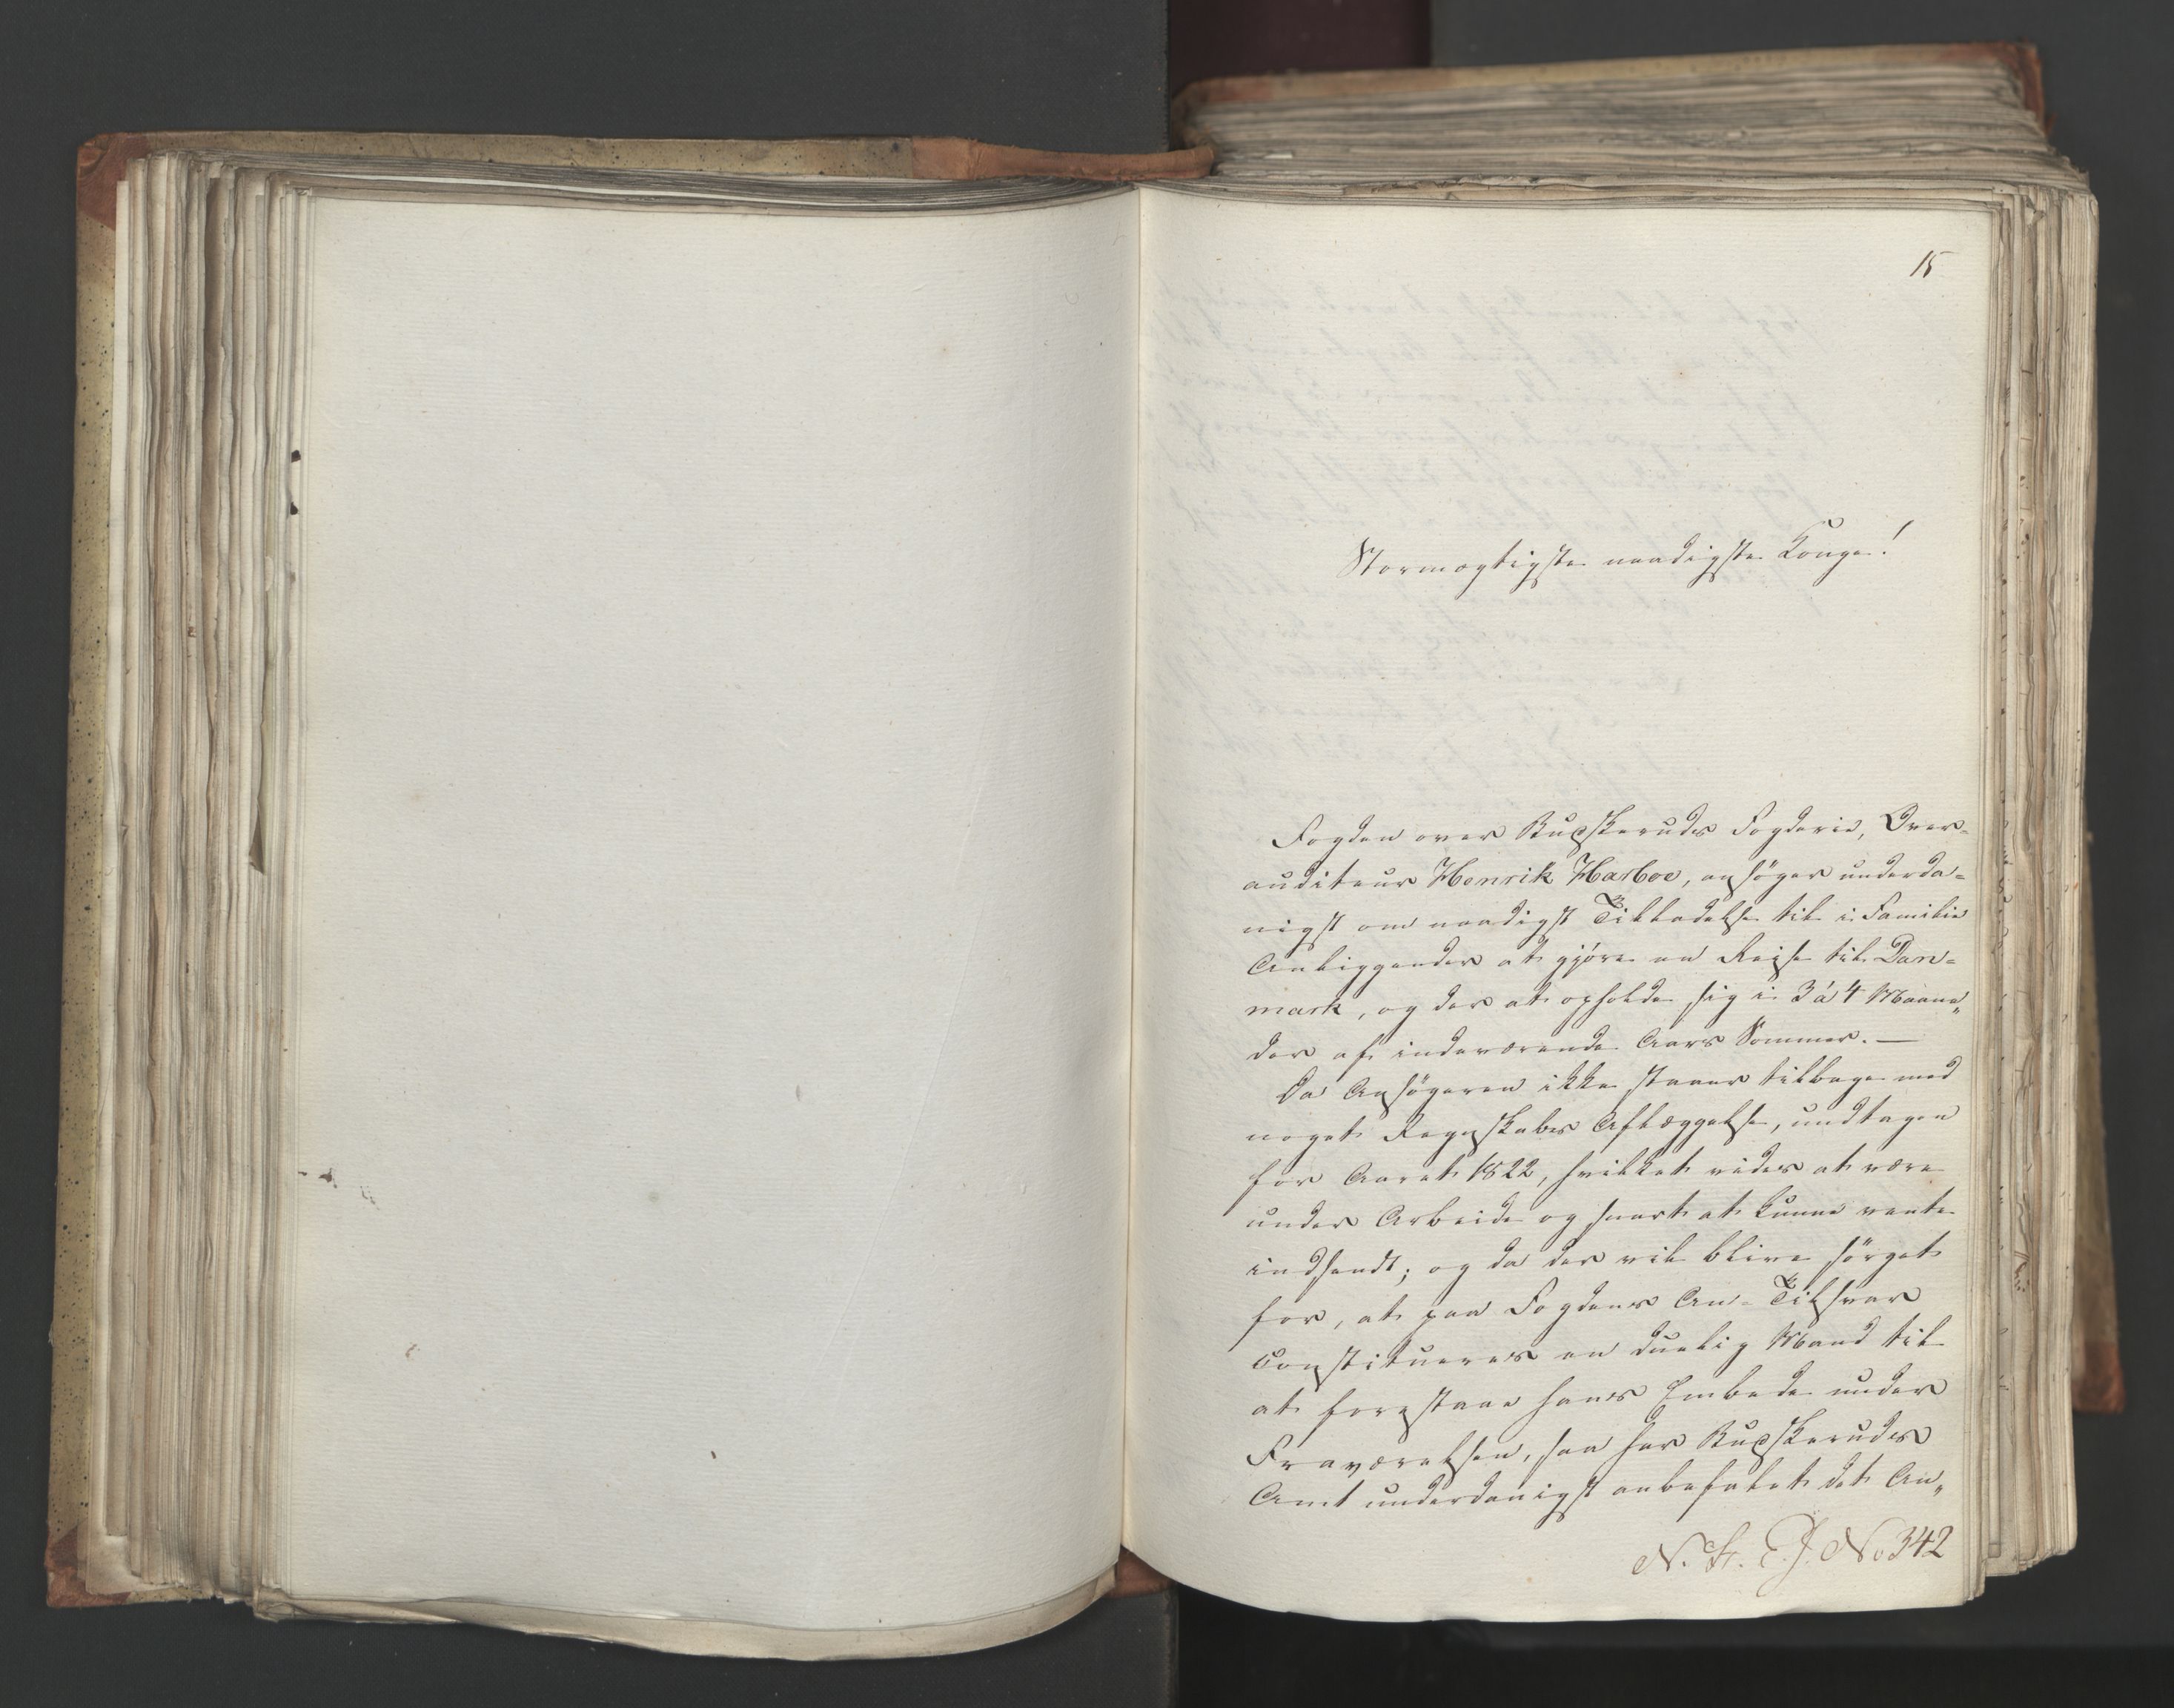 15
Stormægtigste naadigste Konge!
Fogden over Buskeruds Fogderie, Over-
auditeur Henrik Harboe, ansøger underda-
nigst om naadigst Tilladelse til i Familie
Anliggender at gjøre en Reise til Dan-
mark, og der at opholde sig i 3 á 4 Maane„
der af indeværende Aars Sommer. —
Da Ansøgeren ikke staaer tilbage med
noget Regnskabs Aflæggelse, undtagen
for Aaret 1822, hvilket vides at være
under Arbeide og snart at kunne vente
indsendt; og da der vil blive sørget
for, at paa Fogdens An- Tilsvar
constitueres en duelig Mand til
at forestaae hans Embede under
Fraværelsen, saa har Buskeruds
Amt underdanigst anbefalet det An„
N. St. E. J. No 342